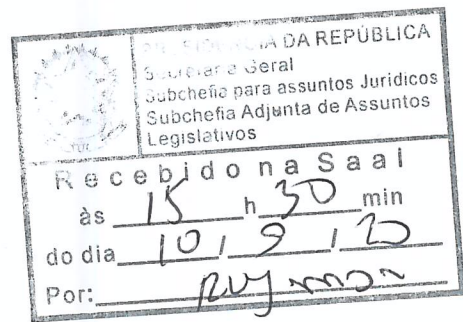 DA REPÚBLICA
Secretaria Geral
Subchefia para assuntos Juridicos
Subchefia Adjunta de Assuntos
Legislativos
Recebido na Saal
às 15 h 30 min
do dia 10 / 9 / 20
Por: